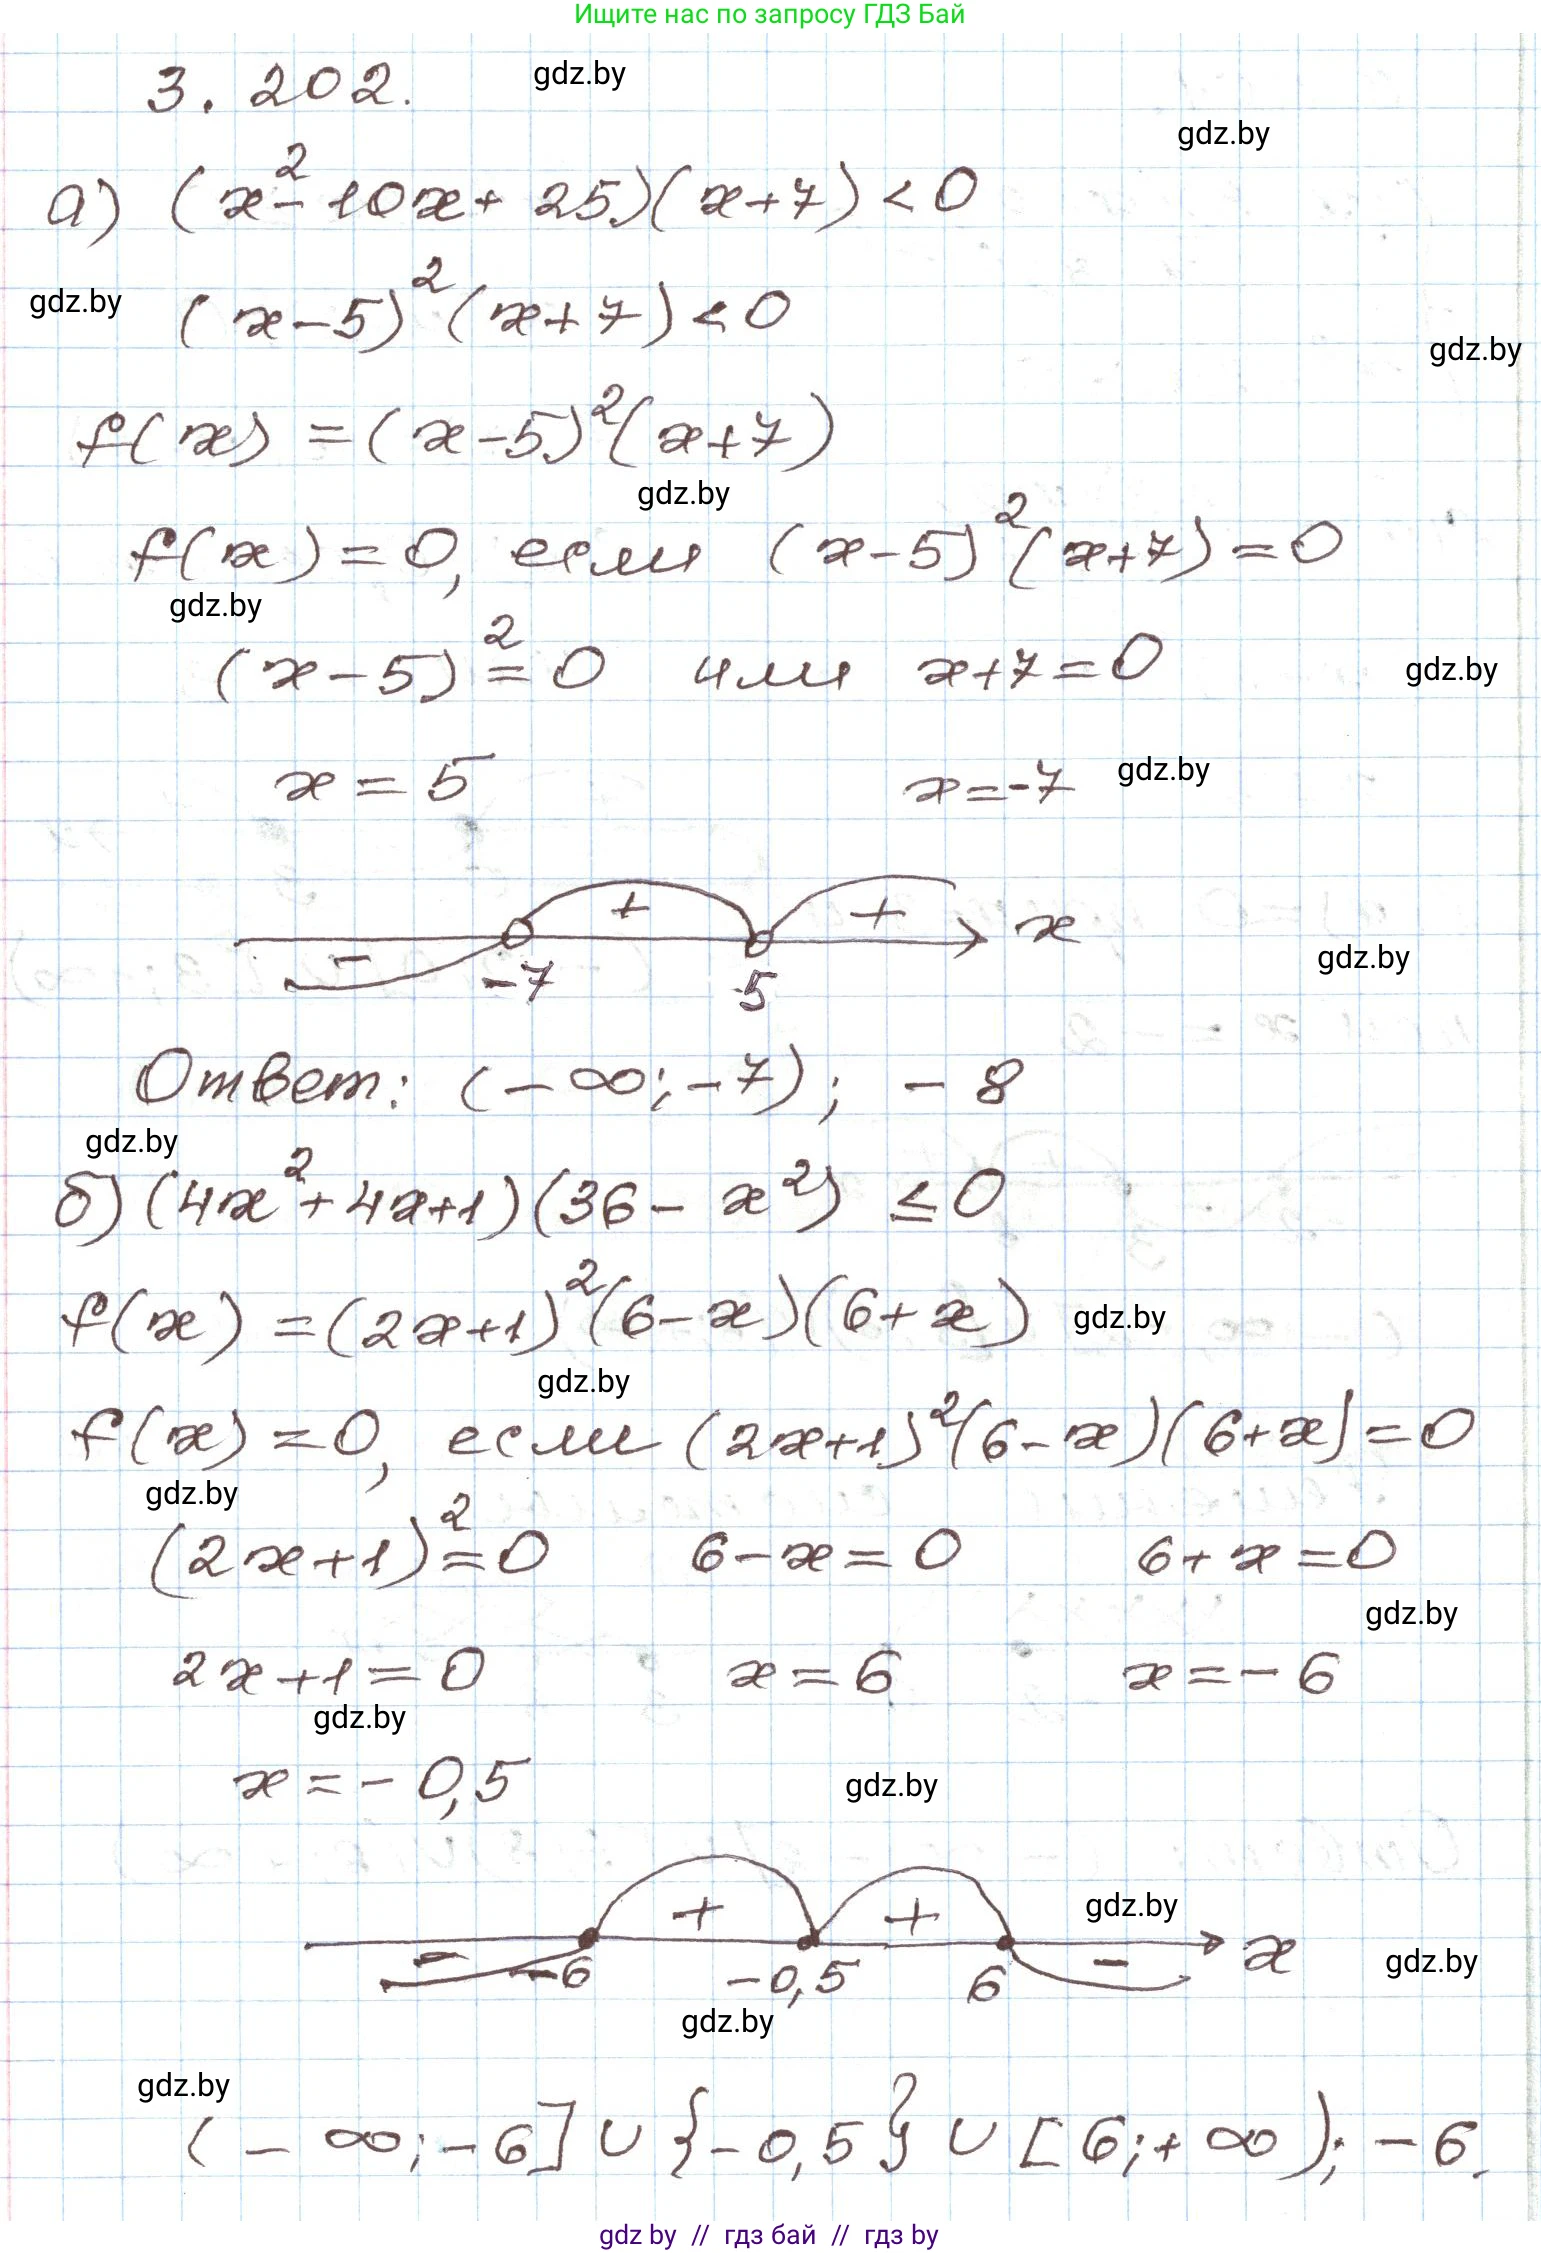 Ищите нас по запросу ГДЗ Бай
3.202.
gdz.by
gdz.by
а) (x²-10x+25)(x+7)<0
gdz.by
(x-5)²(x+7)<0
gdz.by
f(x)=(x-5)²(x+7)
gdz.by
f(x)=0, если (x-5)²(x+7)=0
gdz.by
(x-5)²=0 или x+7=0
gdz.by
x=5 x=-7
gdz.by
- + + x
gdz.by
-7 5
Ответ: (-∞;-7); -8
gdz.by
б) (4x²+4x+1)(36-x²)≤0
f(x)=(2x+1)²(6-x)(6+x)
gdz.by
gdz.by
f(x)=0, если (2x+1)²(6-x)(6+x)=0
gdz.by
(2x+1)²=0 6-x=0 6+x=0
gdz.by
2x+1=0 x=6 x=-6
gdz.by
x=-0,5
gdz.by
gdz.by
- + + - x
gdz.by
-6 -0,5 6
gdz.by
gdz.by
(-∞;-6]∪{-0,5}∪[6;+∞); -6.
gdz by // гдз бай // гдз by